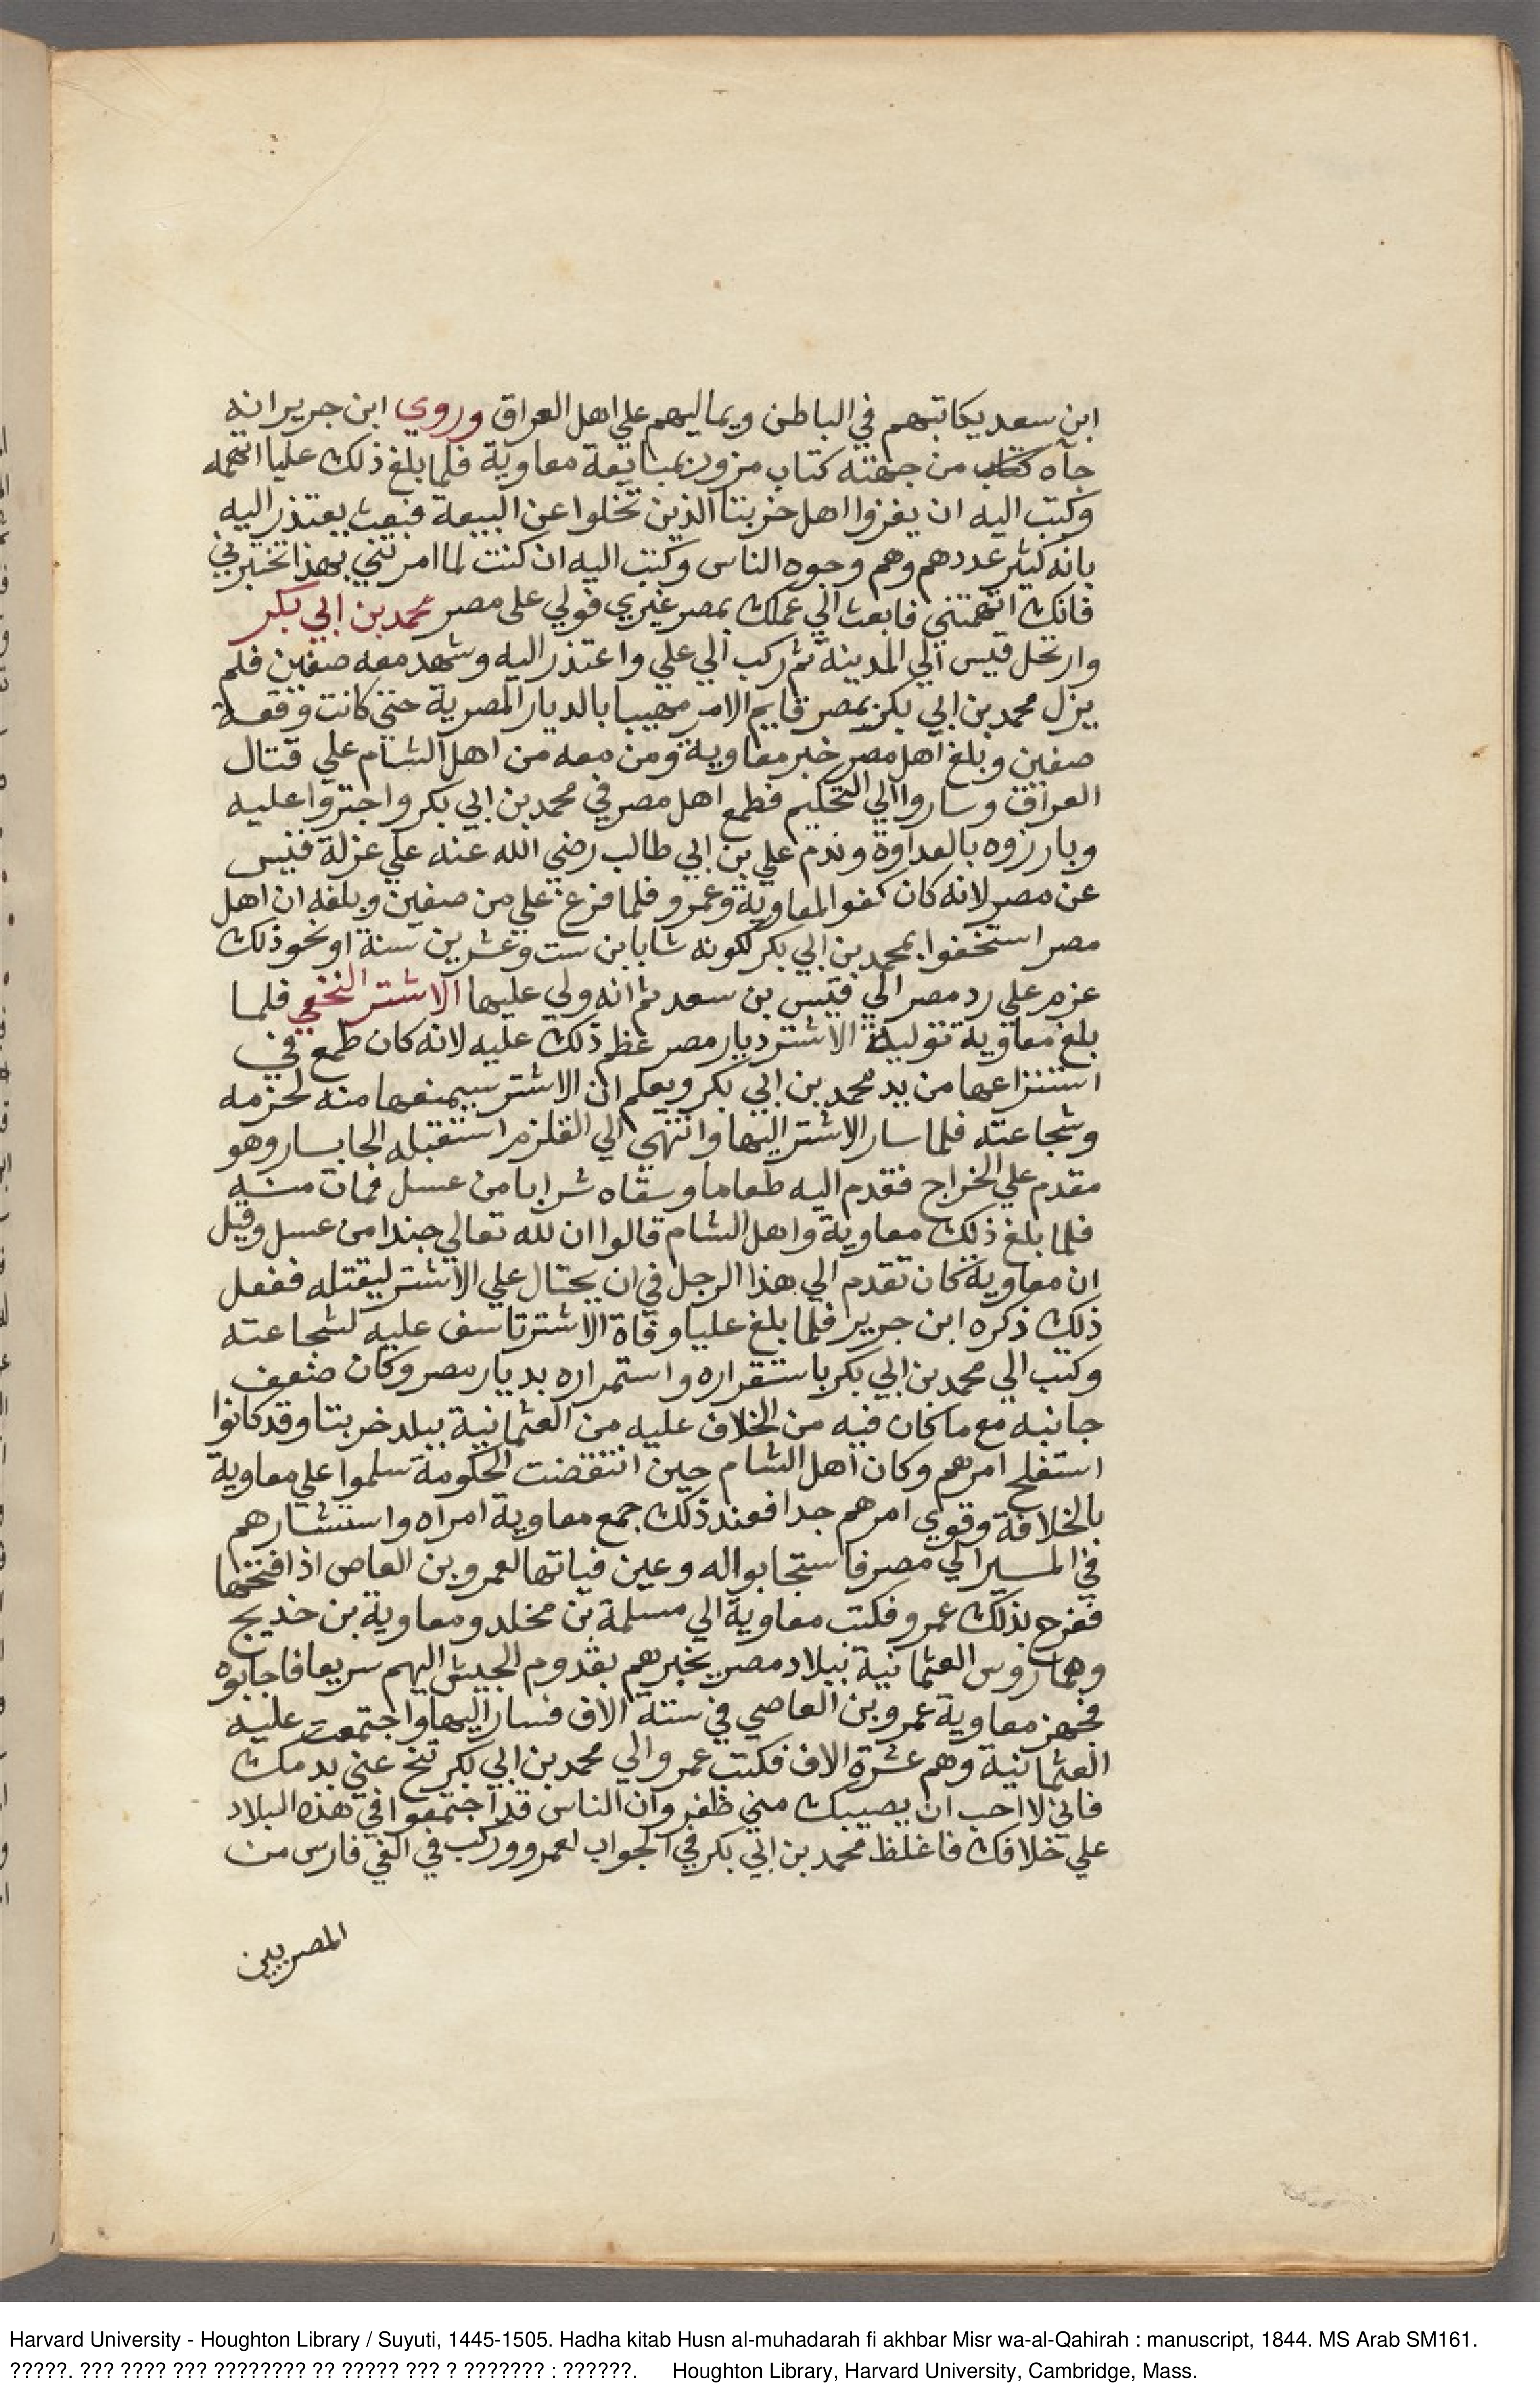 ابن سعد يكاتبهم في الباطن ويماليهم علي اهل العراق وروي ابن جرير انه
جآه كتاب من جهته كتاب مزور بمبايعة معاوية فلما بلغ ذلك عليا اتهمه
وكتب اليه ان يغزوا اهل خربتا الذين تخلوا عن البيعة فبعث يعتذر اليه
بانه كثير عددهم وهم وجوه الناس وكتب اليه ان كنت لما امرتني بهذا تختبرني
فانك اتهمتني فابعث الي عملك بمصر غيري فولي على مصر محمد بن ابي بكر
وارتحل قيس الي المدينة ثم ركب الي علي واعتذر اليه وشهد معه صفين فلم
يزل محمد بن ابي بكر بمصر قايم الامر مهيبا بالديار المصرية حتي كانت وقعة
صفين وبلغ اهل مصر خبر معاوية ومن معه من اهل الشام علي قتال
العراق وساروا الي التحكيم فطمع اهل مصر في محمد بن ابي بكر واجتروا عليه
وبارزوه بالعداوة وندم علي بن ابي طالب رضي الله عنه علي عزلة قيس
عن مصر لانه كان كفوا لمعاوية وعمرو فلما فرغ علي من صفين وبلغه ان اهل
مصر استخفوا بمحمد بن ابي بكر لكونه شابا بن ست وعشرين سنة او نحو ذلك
عزم علي رد مصر الي قيس بن سعد ثم انه ولي عليها الاشتر النخعي فلما
بلغ معاوية تولية الاشتر ديار مصر عظم ذلك عليه لانه كان طمع في
استنزاعها من يد محمد بن ابي بكر ويعلم ان الاشتر سيمنعها منه لحزمه
وشجاعته فلما سار الاشتر اليها وانتهي الي القلزم استقبله الجابسار وهو
مقدم علي الخراج فقدم اليه طعاما وسقاه شرابا من عسل فمات منه
فلما بلغ ذلك معاوية واهل الشام قالوا ان لله تعالي جندا من عسل وقيل
ان معاوية كان تقدم الي هذا الرجل في ان يحتال علي الاشتر ليقتله ففعل
ذلك ذكره ابن جرير فلما بلغ عليا وفاة الاشتر تاسف عليه لشجاعته
وكتب الي محمد بن ابي بكر باستقراره واستمراره بديار مصر وكان ضعف
جانبه مع ما كان فيه من الخلاف عليه من العثمانية ببلد خربتا وقد كانوا
استفلح امرهم وكان اهل الشام حين انتقضت الحكومة سلموا علي معاوية
بالخلافة وقوي امرهم جدا فعند ذلك جمع معاوية امراه واستشارهم
في المسير الي مصر فاستجابوا له وعين فياتها لعمرو بن العاص اذا فتحها
ففرح بذلك عمرو فكتب معاوية الي مسلمة بن مخلد ومعاوية بن خديج
وهما روس العثمانية ببلاد مصر يخبرهم بقدوم الجيش اليهم سريعا فاجابوه
فجهز معاوية عمرو بن العاصي في ستة الاف فسار اليها واجتمعت عليه
العثمانية وهم عشرة الاف فكتب عمرو الي محمد بن ابي بكر تنح عني بدمك
فاني لا احب ان يصيبك مني ظفر وان الناس قد اجتمعوا في هذه البلاد
علي خلافك فاغلظ محمد بن ابي بكر في الجواب لعمرو وركب في الفي فارس من
المصريين
Harvard University - Houghton Library / Suyuti, 1445-1505. Hadha kitab Husn al-muhadarah fi akhbar Misr wa-al-Qahirah : manuscript, 1844. MS Arab SM161.
?????. ??? ???? ??? ???????? ?? ????? ??? ? ??????? : ??????. Houghton Library, Harvard University, Cambridge, Mass.